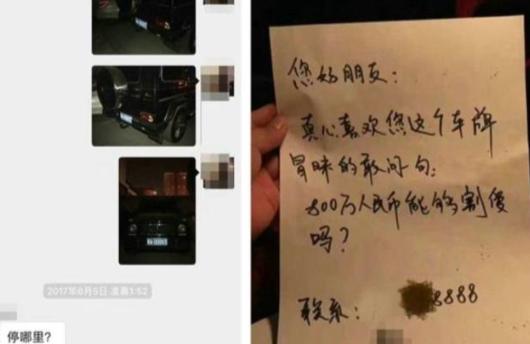 2017年6月5日 凌晨1:52
停哪里?
您好朋友：
真心喜欢您这个车牌
冒昧的敢问句：
800万人民币能够割愛
吗？
联系： 8888